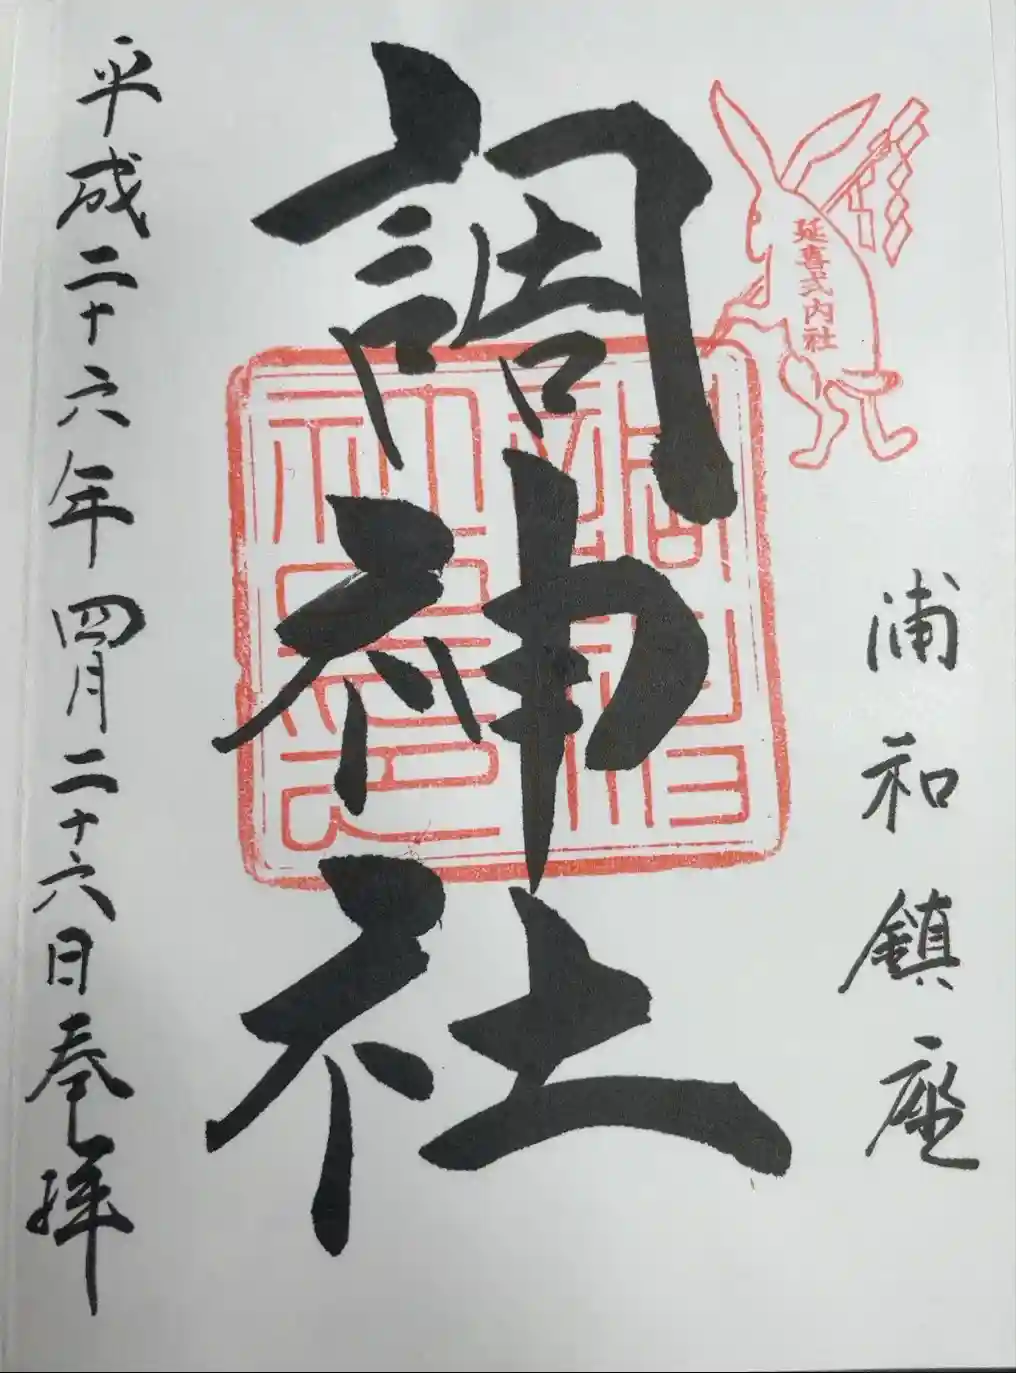 延喜式内社
浦和鎮座
調神社
平成二十六年四月二十六日奉拝